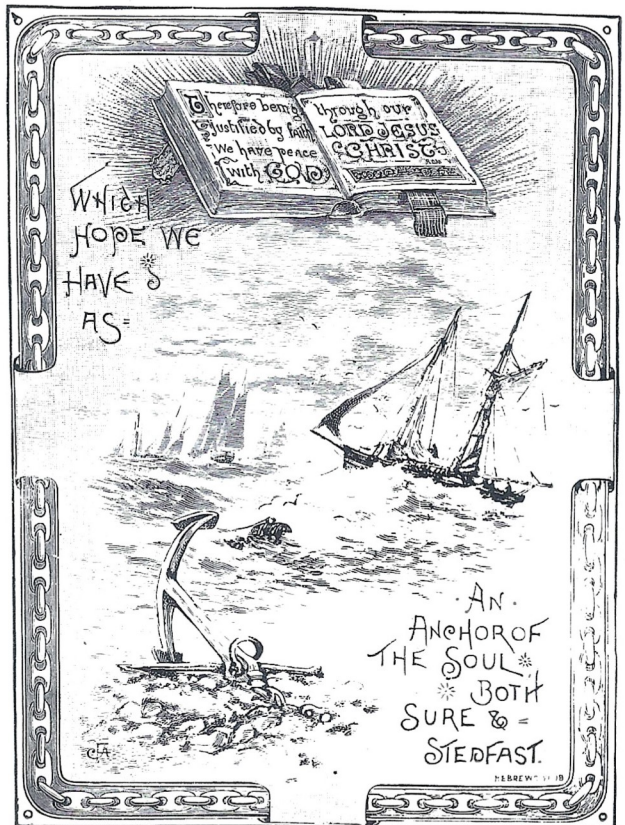 Therefore being
Justified by faith
We have peace
with GOD
through our
LORD JESUS
CHRIST
WHICH
HOPE WE
HAVE
AS=
AN
ANCHOR OF
THE SOUL
BOTH
SURE & =
STEDFAST.
HEBREWS
CFA